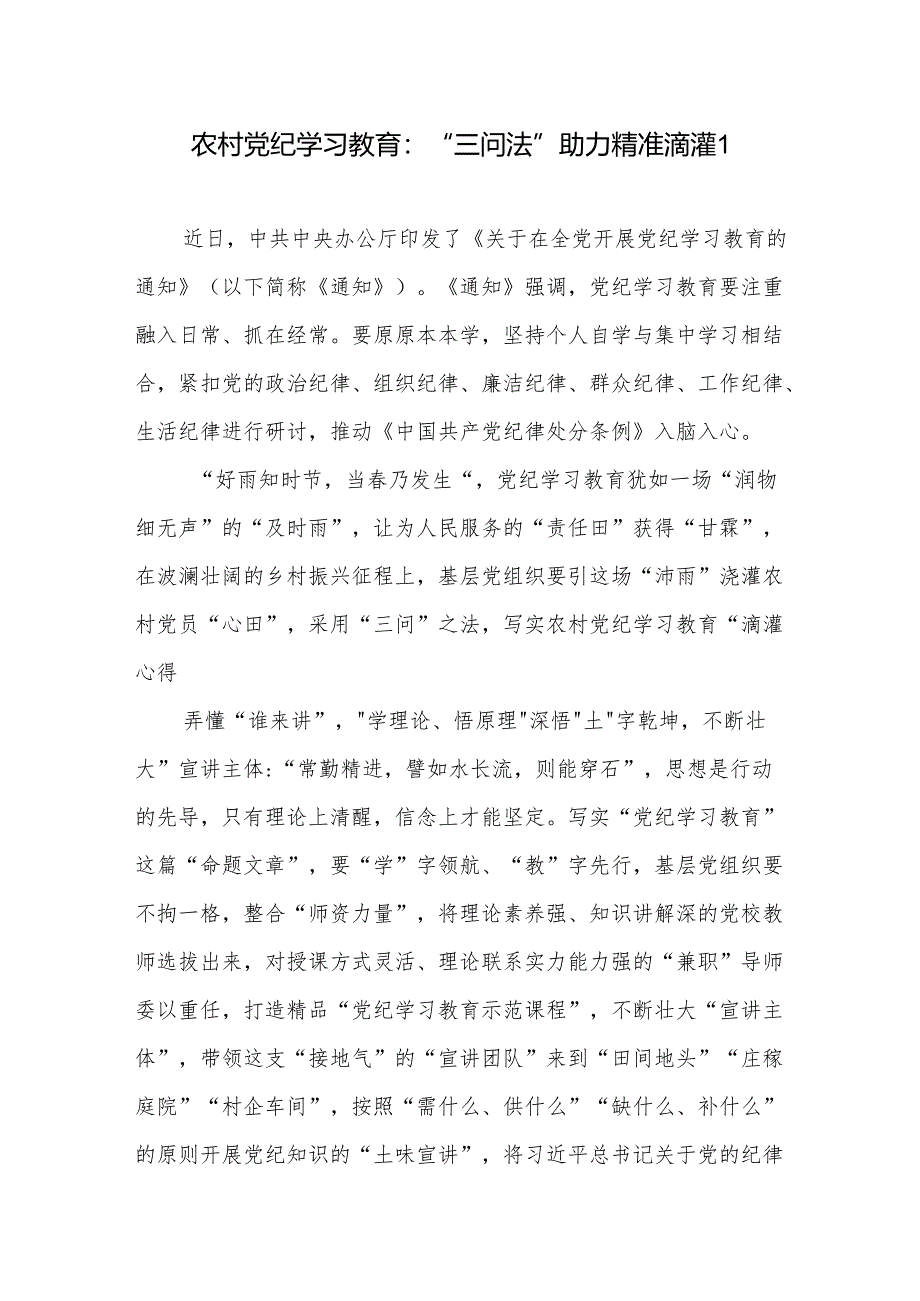 农村党纪学习教育：“三问法”助力精准滴灌1
近日，中共中央办公厅印发了《关于在全党开展党纪学习教育的
通知》（以下简称《通知》）。《通知》强调，党纪学习教育要注重
融入日常、抓在经常。要原原本本学，坚持个人自学与集中学习相结
合，紧扣党的政治纪律、组织纪律、廉洁纪律、群众纪律、工作纪律、
生活纪律进行研讨，推动《中国共产党纪律处分条例》入脑入心。
“好雨知时节，当春乃发生“，党纪学习教育犹如一场“润物
细无声”的“及时雨”，让为人民服务的“责任田”获得“甘霖”，
在波澜壮阔的乡村振兴征程上，基层党组织要引这场“沛雨”浇灌农
村党员“心田”，采用“三问”之法，写实农村党纪学习教育“滴灌
心得
弄懂“谁来讲”，"学理论、悟原理"深悟"土"字乾坤，不断壮
大”宣讲主体:“常勤精进，譬如水长流，则能穿石”，思想是行动
的先导，只有理论上清醒，信念上才能坚定。写实“党纪学习教育”
这篇“命题文章”，要“学”字领航、“教”字先行，基层党组织要
不拘一格，整合“师资力量”，将理论素养强、知识讲解深的党校教
师选拔出来，对授课方式灵活、理论联系实力能力强的“兼职”导师
委以重任，打造精品“党纪学习教育示范课程”，不断壮大“宣讲主
体”，带领这支“接地气”的“宣讲团队”来到“田间地头”“庄稼
庭院”“村企车间”，按照“需什么、供什么”“缺什么、补什么”
的原则开展党纪知识的“土味宣讲”，将习近平总书记关于党的纪律